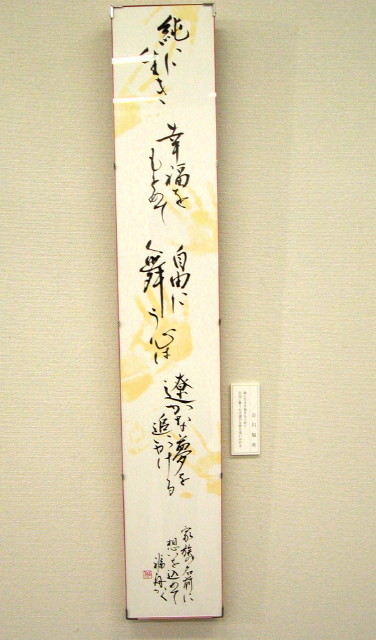 純に
生き
幸福を
もとめて
自由に
舞う心は
遼かな夢を
追いかける
家族の名前に
想いを込めて